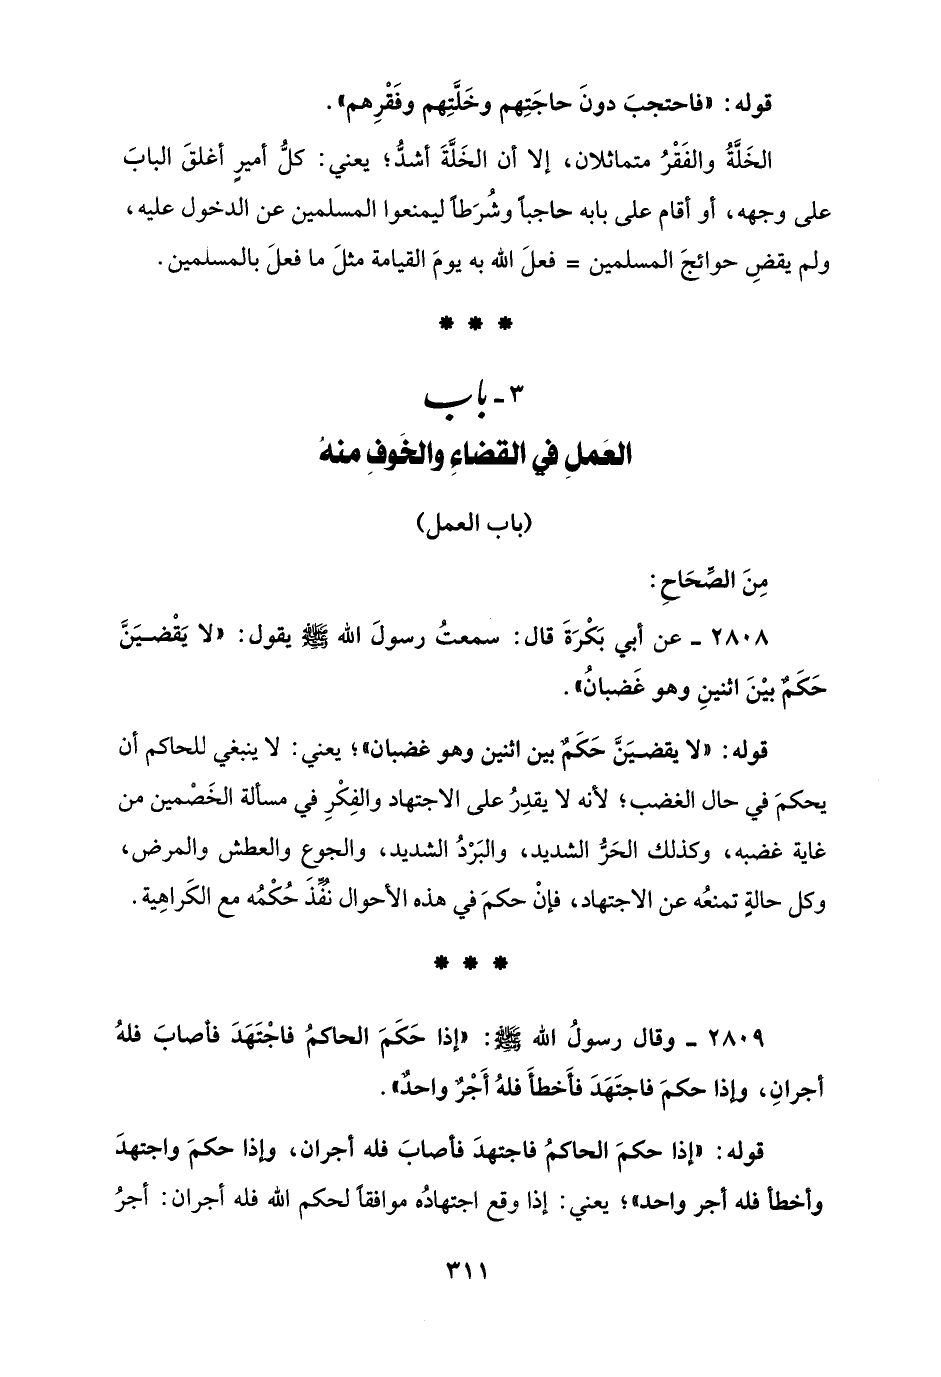 قوله: «فاحتجبَ دونَ حاجَتِهم وخَلَّتِهم وفَقْرِهم».
الخَلَّةُ والفَقْرُ متماثلان، إلا أن الخَلَّةَ أشدُّ؛ يعني: كلُّ أميرٍ أغلقَ البابَ
على وجهه، أو أقام على بابه حاجباً وشُرَطاً ليمنعوا المسلمين عن الدخول عليه،
ولم يقضِ حوائجَ المسلمين = فعلَ الله به يومَ القيامة مثلَ ما فعلَ بالمسلمين.
* * *
٣ - باب
العَملِ في القضاءِ والخَوفِ منهُ
(باب العمل)
مِنَ الصِّحَاحِ:
٢٨٠٨ - عن أبي بَكْرَةَ قال: سمعتُ رسولَ الله ﷺ يقول: «لا يَقْضيَنَّ
حَكَمٌ بيْنَ اثنينِ وهو غَضبانُ».
قوله: «لا يقضيَنَّ حَكَمٌ بين اثنين وهو غضبان»؛ يعني: لا ينبغي للحاكم أن
يحكمَ في حال الغضب؛ لأنه لا يقدِرُ على الاجتهاد والفِكْرِ في مسألة الخَصْمين من
غاية غضبه، وكذلك الحَرُّ الشديد، والبَرْدُ الشديد، والجوع والعطش والمرض،
وكل حالةٍ تمنعُه عن الاجتهاد، فإنْ حكمَ في هذه الأحوال نُفِّذَ حُكْمُه مع الكَراهِية.
* * *
٢٨٠٩ - وقال رسولُ الله ﷺ: «إذا حَكَمَ الحاكمُ فاجْتَهَدَ فأصابَ فلهُ
أجرانِ، وإذا حكمَ فاجتَهَدَ فأَخطأَ فلهُ أَجْرٌ واحدٌ».
قوله: «إذا حكمَ الحاكمُ فاجتهدَ فأصابَ فله أجران، وإذا حكمَ واجتهدَ
وأخطأ فله أجر واحد»؛ يعني: إذا وقع اجتهادُه موافقاً لحكم الله فله أجران: أجرُ
٣١١